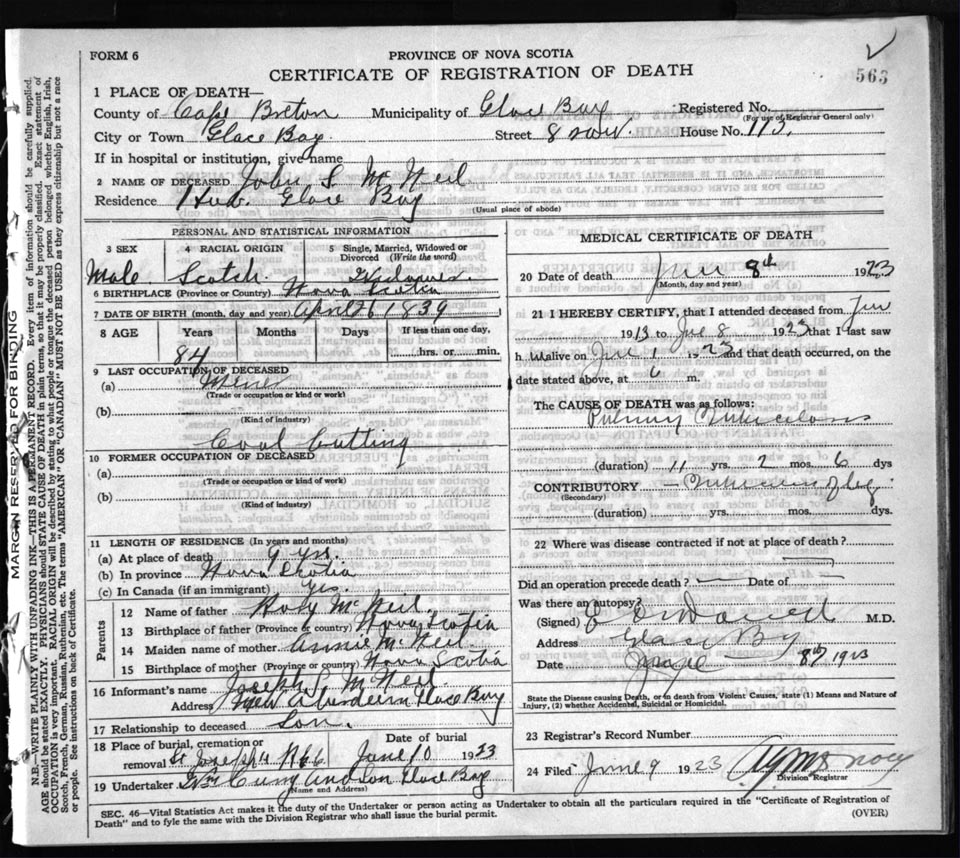 FORM 6
PROVINCE OF NOVA SCOTIA
563
CERTIFICATE OF REGISTRATION OF DEATH
1 PLACE OF DEATH—
County of Cape Breton Municipality of Glace Bay Registered No.
(For use of Registrar General only)
City or Town Glace Bay Street 8 row. House No. 113.
If in hospital or institution, give name
2 NAME OF DECEASED John S McNeil
Residence Hub. Glace Bay
(Usual place of abode)
PERSONAL AND STATISTICAL INFORMATION
3 SEX 4 RACIAL ORIGIN 5 Single, Married, Widowed or Divorced (Write the word)
Male Scotch
6 BIRTHPLACE (Province or Country) Nova Scotia
7 DATE OF BIRTH (month, day and year) April 1839
8 AGE Years Months Days If less than one day,
84 hrs. or min.
9 LAST OCCUPATION OF DECEASED
(a) Miner
(Trade or occupation or kind or work)
(b)
(Kind of industry)
Coal Cutting
10 FORMER OCCUPATION OF DECEASED
(a)
(Trade or occupation or kind or work)
(b)
(Kind of industry)
11 LENGTH OF RESIDENCE (In years and months)
(a) At place of death 9 yrs.
(b) In province Nova Scotia
(c) In Canada (if an immigrant) Yes.
Parents
12 Name of father Rory McNeil.
13 Birthplace of father (Province or country) Nova Scotia
14 Maiden name of mother Annie McNeil
15 Birthplace of mother (Province or country) Nova Scotia
16 Informant's name Joseph S McNeil
Address New Aberdeen Glace Bay
17 Relationship to deceased Son.
18 Place of burial, cremation or removal Date of burial
St Josephs June 10 1923
19 Undertaker Wm and Son Glace Bay
(Name and Address)
MEDICAL CERTIFICATE OF DEATH
20 Date of death June 8th 1923
(Month, day and year)
21 I HEREBY CERTIFY, that I attended deceased from
1913 to June 8 1923 that I last saw
h m alive on June 1 1923 and that death occurred, on the
date stated above, at 6 m.
The CAUSE OF DEATH was as follows:
(duration) 11 yrs. 2 mos. 6 dys
CONTRIBUTORY
(Secondary)
(duration) yrs. mos. dys.
22 Where was disease contracted if not at place of death?
Did an operation precede death? — Date of —
Was there an autopsy?
(Signed) M.D.
Address Glace Bay
Date June 8th 1923
State the Disease causing Death, or in death from Violent Causes, state (1) Means and Nature of
Injury, (2) whether Accidental, Suicidal or Homicidal.
23 Registrar's Record Number
24 Filed June 9 1923
Division Registrar
SEC. 46—Vital Statistics Act makes it the duty of the Undertaker or person acting as Undertaker to obtain all the particulars required in the "Certificate of Registration of
Death" and to fyle the same with the Division Registrar who shall issue the burial permit.
(OVER)
MARGIN RESERVED FOR BINDING
N.B.—WRITE PLAINLY WITH UNFADING INK—THIS IS A PERMANENT RECORD. Every item of information should be carefully supplied.
AGE should be stated EXACTLY. PHYSICIANS should STATE CAUSE OF DEATH in plain terms, so that it may be properly classified. Exact statement of
OCCUPATION is very important. RACIAL ORIGIN will be described by stating to what people or tongue the deceased person belonged whether English, Irish,
Scotch, French, German, Russian, Ruthenian, etc. The terms "AMERICAN" OR "CANADIAN" MUST NOT BE USED as they express citizenship but not a race
or people. See instructions on back of Certificate.